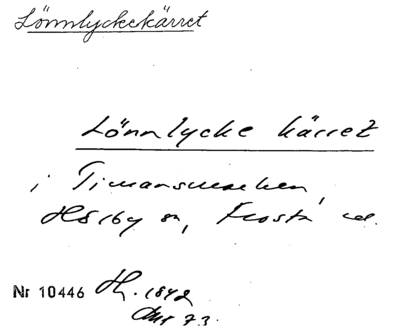 Lönnlyckekärret
Lönnlycke kärret
i Timansmarken,
Hörby sn, Frosta
Nr 10446 Hy. 1842
7 3.